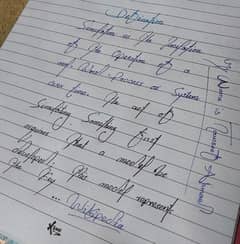 Definition
Simulation is the Imitation
of the Operation of a
real World Process or System
over time. The act of
Simulating Something First
requires That a model be
developed. This model represents
The Key ... Wikipedia
My Name is